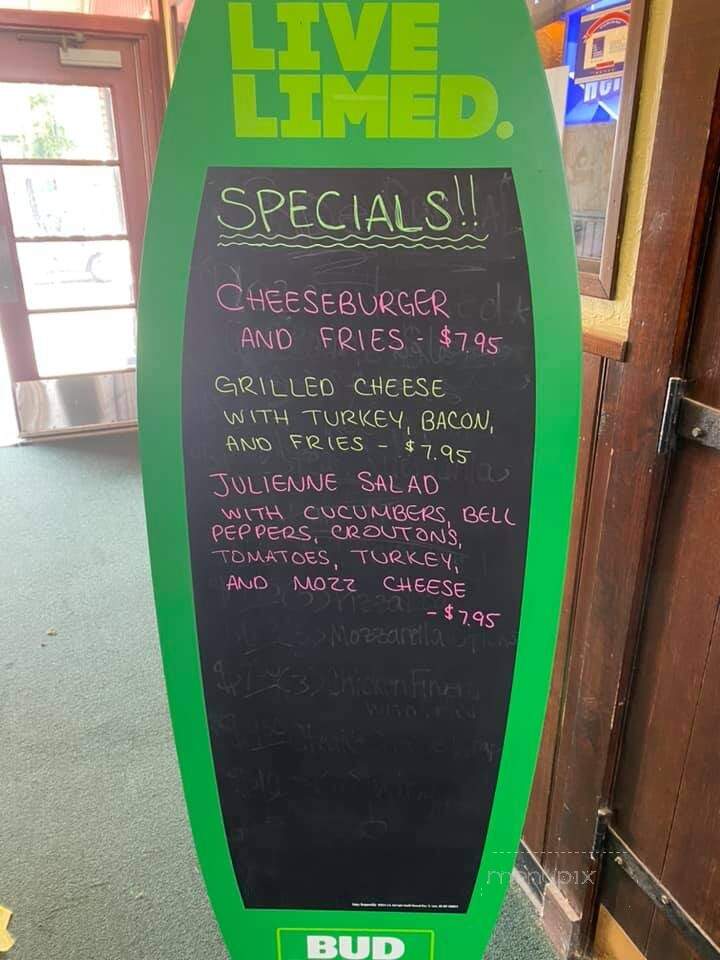 LIVE
LIMED.
SPECIALS!!
CHEESEBURGER
AND FRIES - $7.95
GRILLED CHEESE
WITH TURKEY, BACON,
AND FRIES - $7.95
JULIENNE SALAD
WITH CUCUMBERS, BELL
PEPPERS, CROUTONS,
TOMATOES, TURKEY,
AND MOZZ CHEESE
- $7.95
Mozzarella
Chicken Fingers
menupix
BUD